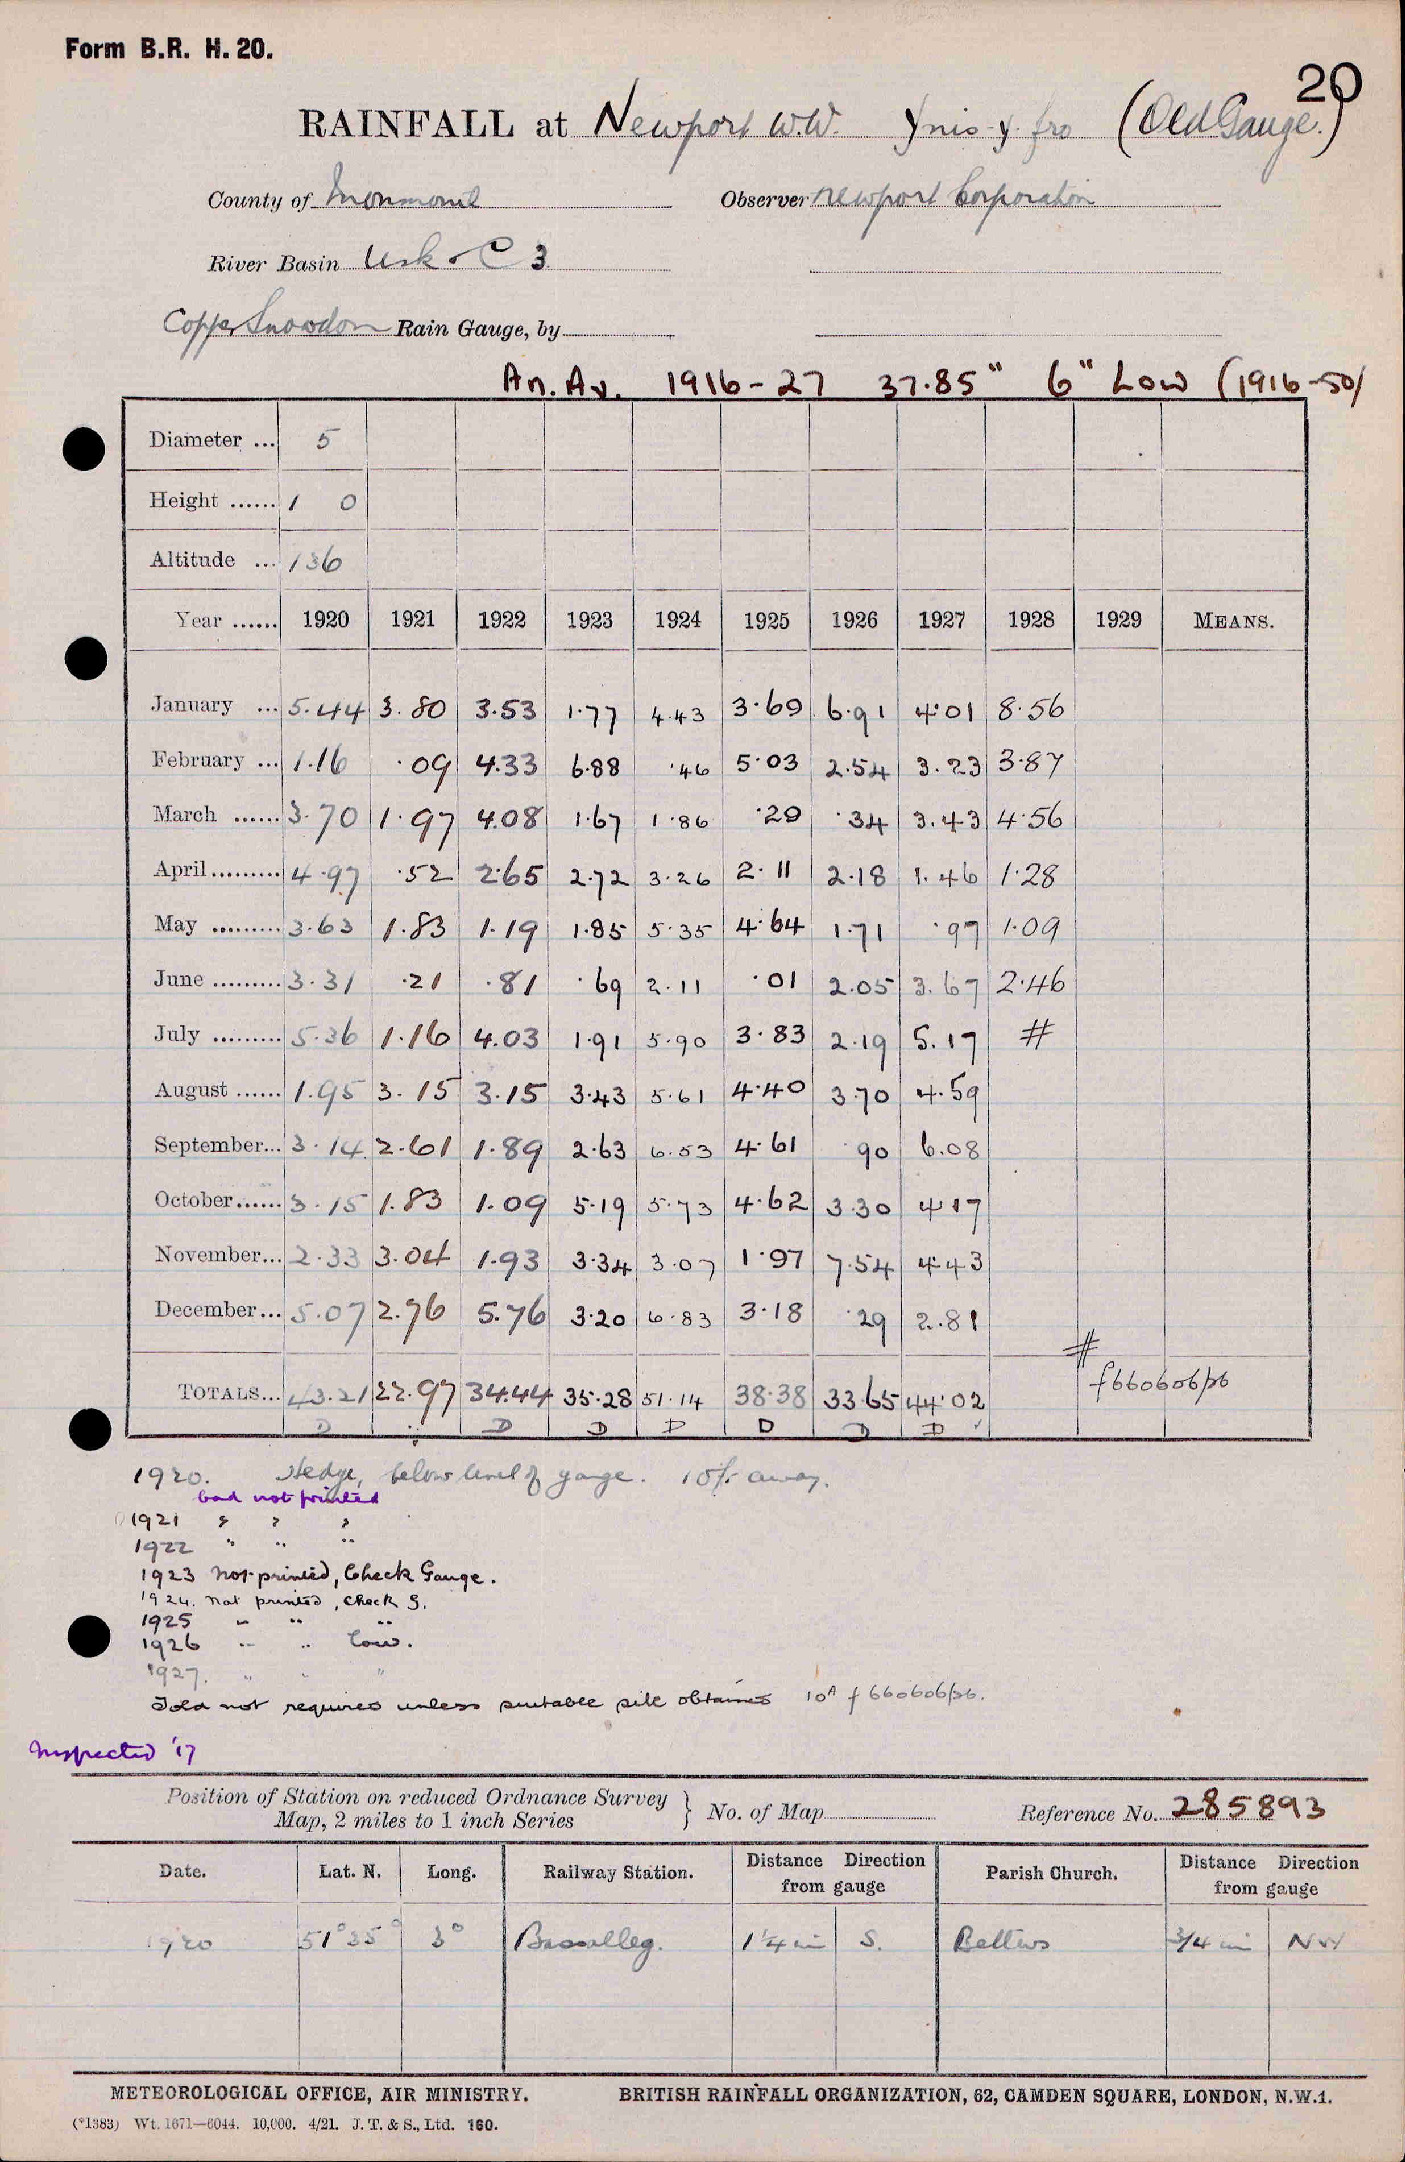 Form B.R. H. 20.
20
RAINFALL at Newport W.W. Ynis-y-fro (Old Gauge.)
County of Monmouth Observer Newport Corporation
River Basin Usk - C 3
Copper Snowdon Rain Gauge, by
An. Av. 1916-27 37.85" 6" Low (1916-50)
Diameter ... 5
Height ...... 1 0
Altitude ... 136
Year ...... 1920 1921 1922 1923 1924 1925 1926 1927 1928 1929 MEANS.
January ... 5.44 3.80 3.53 1.77 4.43 3.69 6.91 4.01 8.56
February ... 1.16 .09 4.33 6.88 .46 5.03 2.54 3.23 3.87
March ...... 3.70 1.97 4.08 1.67 1.86 .29 .34 3.43 4.56
April ......... 4.97 .52 2.65 2.72 3.26 2.11 2.18 1.46 1.28
May ......... 3.63 1.83 1.19 1.85 5.35 4.64 1.71 .97 1.09
June ......... 3.31 .21 .81 .69 2.11 .01 2.05 3.67 2.46
July ......... 5.36 1.16 4.03 1.91 5.90 3.83 2.19 5.17 #
August ...... 1.95 3.15 3.15 3.43 5.61 4.40 3.70 4.59
September... 3.14 2.61 1.89 2.63 6.53 4.61 .90 6.08
October...... 3.15 1.83 1.09 5.19 5.73 4.62 3.30 4.17
November... 2.33 3.04 1.93 3.34 3.07 1.97 7.54 4.43
December... 5.07 2.76 5.76 3.20 6.83 3.18 .29 2.81
#
TOTALS... 43.21 22.97 34.44 35.28 51.14 38.38 33.65 44.02 f660606/26
D D D D D D D
1920. Hedge, below level of gauge. 10 ft away.
bad not printed
1921 " " "
1922 " " "
1923 Not printed, Check Gauge.
1924. Not printed, Check G.
1925 " " "
1926 " " low.
1927. " " "
Told not required unless suitable site obtained f 660606/26.
Inspected '17
Position of Station on reduced Ordnance Survey
Map, 2 miles to 1 inch Series } No. of Map Reference No. 285893
Date. Lat. N. Long. Railway Station. Distance Direction from gauge Parish Church. Distance Direction from gauge
1920 51° 35' 3° Bassalleg. 1 1/4 mi S. Bettws 3/4 mi NW
METEOROLOGICAL OFFICE, AIR MINISTRY. BRITISH RAINFALL ORGANIZATION, 62, CAMDEN SQUARE, LONDON, N.W.1.
(*1383) Wt. 1671—6044. 10,000. 4/21. J. T. & S., Ltd. 160.